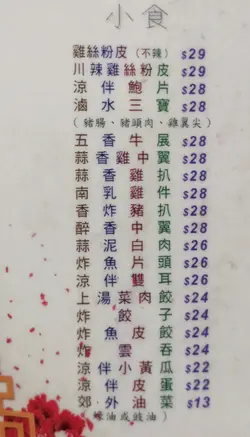 小食
雞絲粉皮(不辣) $29
川辣雞絲粉皮 $29
涼伴鮑片 $28
滷水三寶 $28
(豬腸、豬頭肉、雞翼尖)
五香牛展 $28
蒜香雞中翼 $28
香雞扒 $28
南乳雞件 $28
香炸豬扒 $28
醉香中翼 $28
蒜泥白肉 $26
炸魚片頭 $26
涼伴雙耳 $26
上湯菜肉餃 $24
炸餃子 $24
炸魚皮餃 $24
炸雲吞 $24
涼伴小黃瓜 $22
涼伴皮蛋 $22
郊外油菜 $13
(蠔油或豉油)